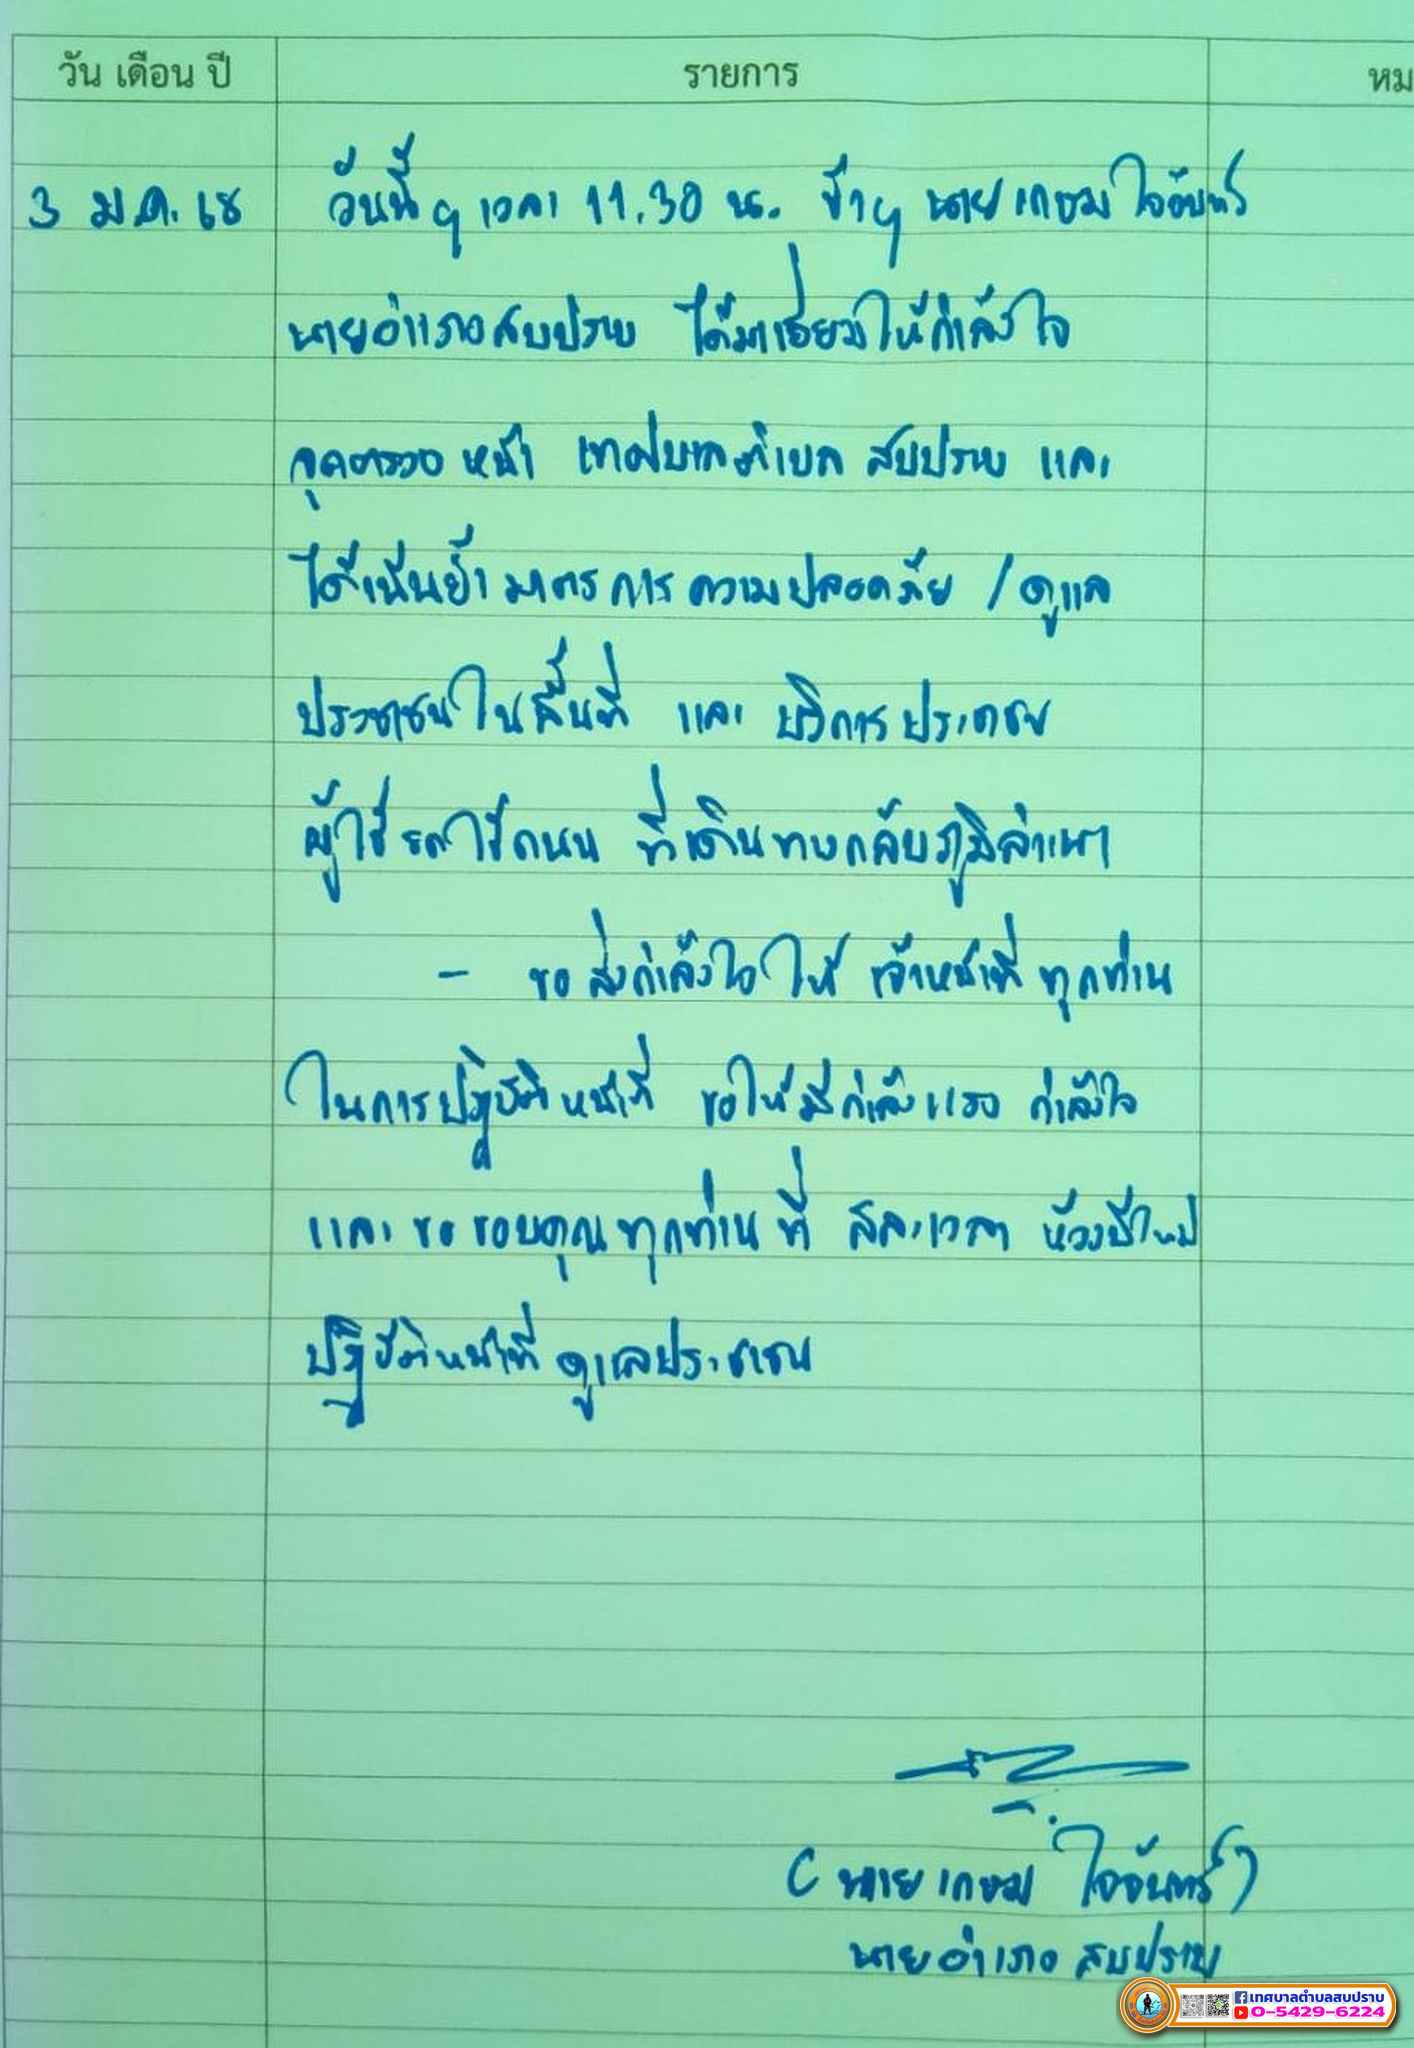 วัน เดือน ปี รายการ หม
3 ม.ค. 68 วันนี้ๆ เวลา 11.30 น. ข้าฯ นายเกษม ใจจันทร์
นายอำเภอสบปราบ ได้มาเยี่ยมให้กำลังใจ
จุดตรวจ หน้า เทศบาลตำบล สบปราบ และ
ได้เน้นย้ำ มาตรการ ความปลอดภัย / ดูแล
ประชาชนในพื้นที่ และ บริการ ประชาชน
ผู้ใช้รถใช้ถนน ที่เดินทางกลับภูมิลำเนา
- ขอส่งกำลังใจ ให้ เจ้าหน้าที่ ทุกท่าน
ในการปฏิบัติหน้าที่ ขอให้มีกำลังแรง กำลังใจ
และขอขอบคุณทุกท่านที่ สละเวลา ห้วงปีใหม่
ปฏิบัติหน้าที่ ดูแลประชาชน
( นายเกษม ใจจันทร์ )
นายอำเภอ สบปราบ
เทศบาลตำบลสบปราบ
0-5429-6224